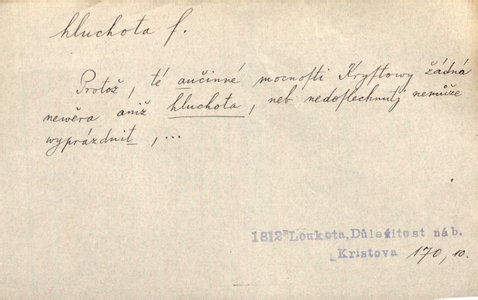 hluchota f.
Protož, té aučinné mocnosti Krystowy žádná
newěra aniž hluchota, neb nedoslechnutj nemůže
wyprázdnit, ...
1812 Loukota, Důležitost náb.
Kristova 170, 10.